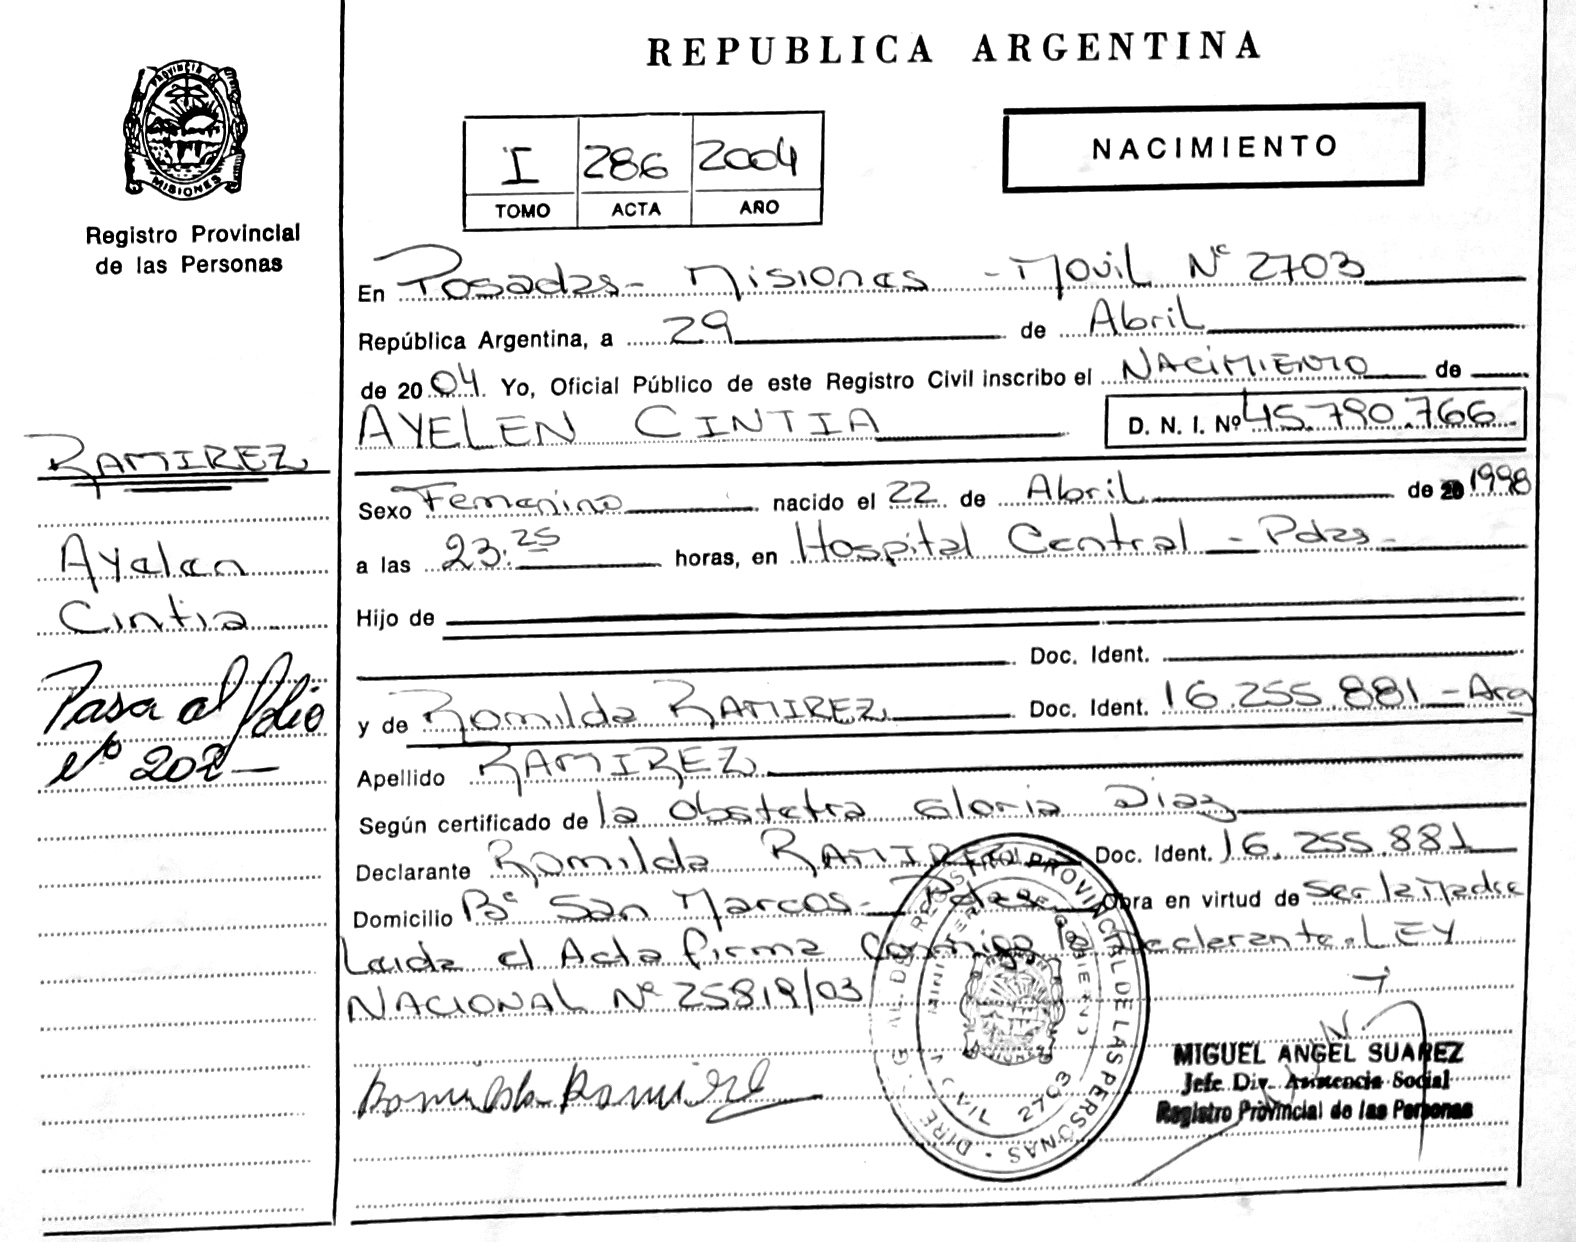 REPUBLICA ARGENTINA
PROVINCIA DE
MISIONES
Registro Provincial
de las Personas
I 286 2004
TOMO ACTA AÑO
NACIMIENTO
En Posadas - Misiones - Movil Nº 2703
República Argentina, a 29 de Abril
de 2004 Yo, Oficial Público de este Registro Civil inscribo el Nacimiento de
AYELEN CINTIA D. N. I. Nº 45.790.766
Sexo Femenino nacido el 22 de Abril de 20 1998
a las 23.25 horas, en Hospital Central - Pdas -
Hijo de
Doc. Ident.
y de Romilda RAMIREZ Doc. Ident. 16.255.881 - Arg
Apellido RAMIREZ
Según certificado de la Obstetra Gloria Diaz
Declarante Romilda RAMIREZ Doc. Ident. 16.255.881
Domicilio Bº San Marcos - Pdas Obra en virtud de Ser la Madre
Leida el Acta firma Conmigo la Declarante. LEY
NACIONAL Nº 25819/03
Romilda Ramirez
MIGUEL ANGEL SUAREZ
Jefe Div. Asistencia Social
Registro Provincial de las Personas
DIRE GRAL DEL REGISTRO PROVINCIAL DE LAS PERSONAS
MINISTERIO DE GOBIERNO
MOVIL 2703
MISIONES
RAMIREZ
Ayelen
Cintia
Pasa al folio
Nº 202 -